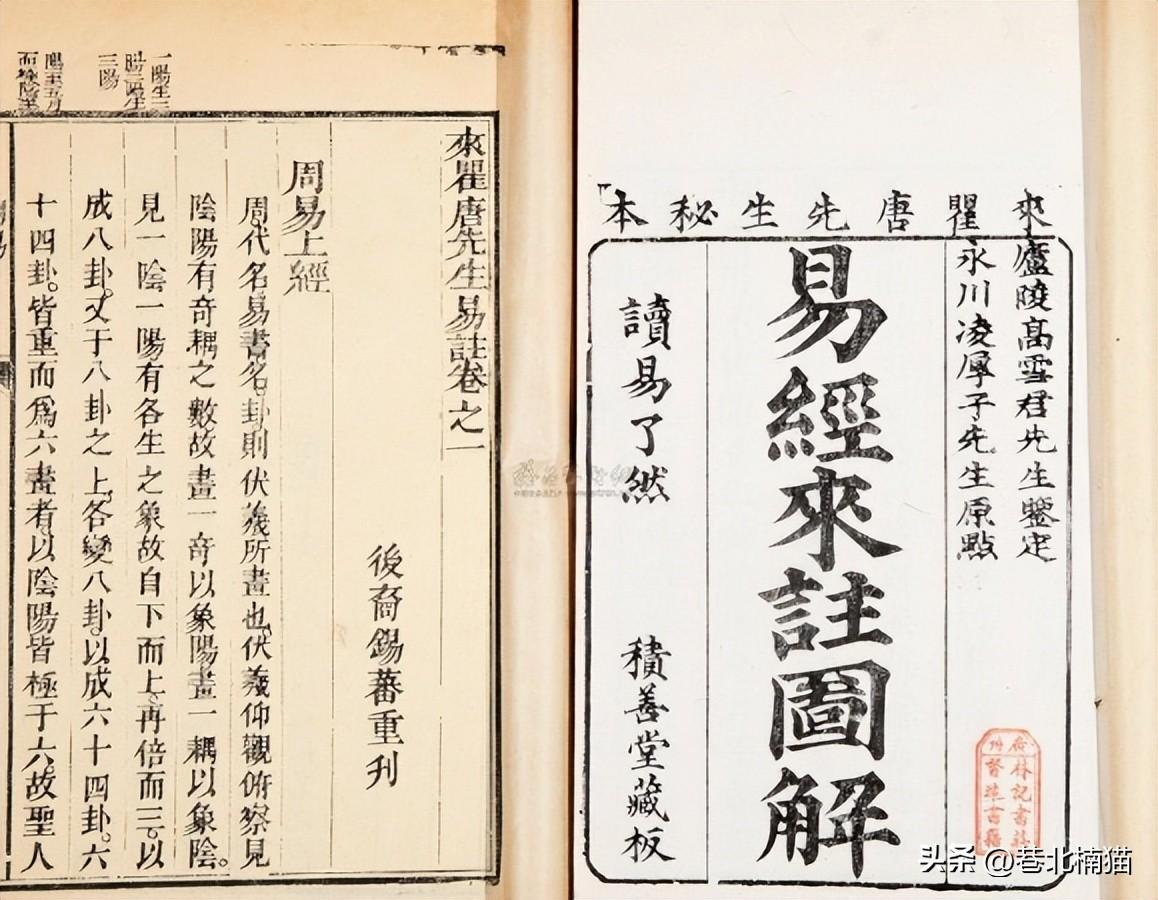 來瞿唐先生秘本
廬陵高雪君先生鑒定
永川凌厚子先生原點
易經來註圖解
讀易了然 積善堂藏板
林記書莊
督造書籍
來瞿唐先生易註卷之一
後裔錫蕃重刊
周易上經
周代名易書名。卦則伏羲所畫也。伏羲仰觀俯察見
陰陽有奇耦之數故畫一奇以象陽畫一耦以象陰。
見一陰一陽有各生之象故自下而上。再倍而三。以
成八卦。又于八卦之上。各變八卦。以成六十四卦。六
十四卦。皆重而爲六畫者。以陰陽皆極于六。故聖人
一陽生二
三陽
陽至五月
头条 @巷北楠猫